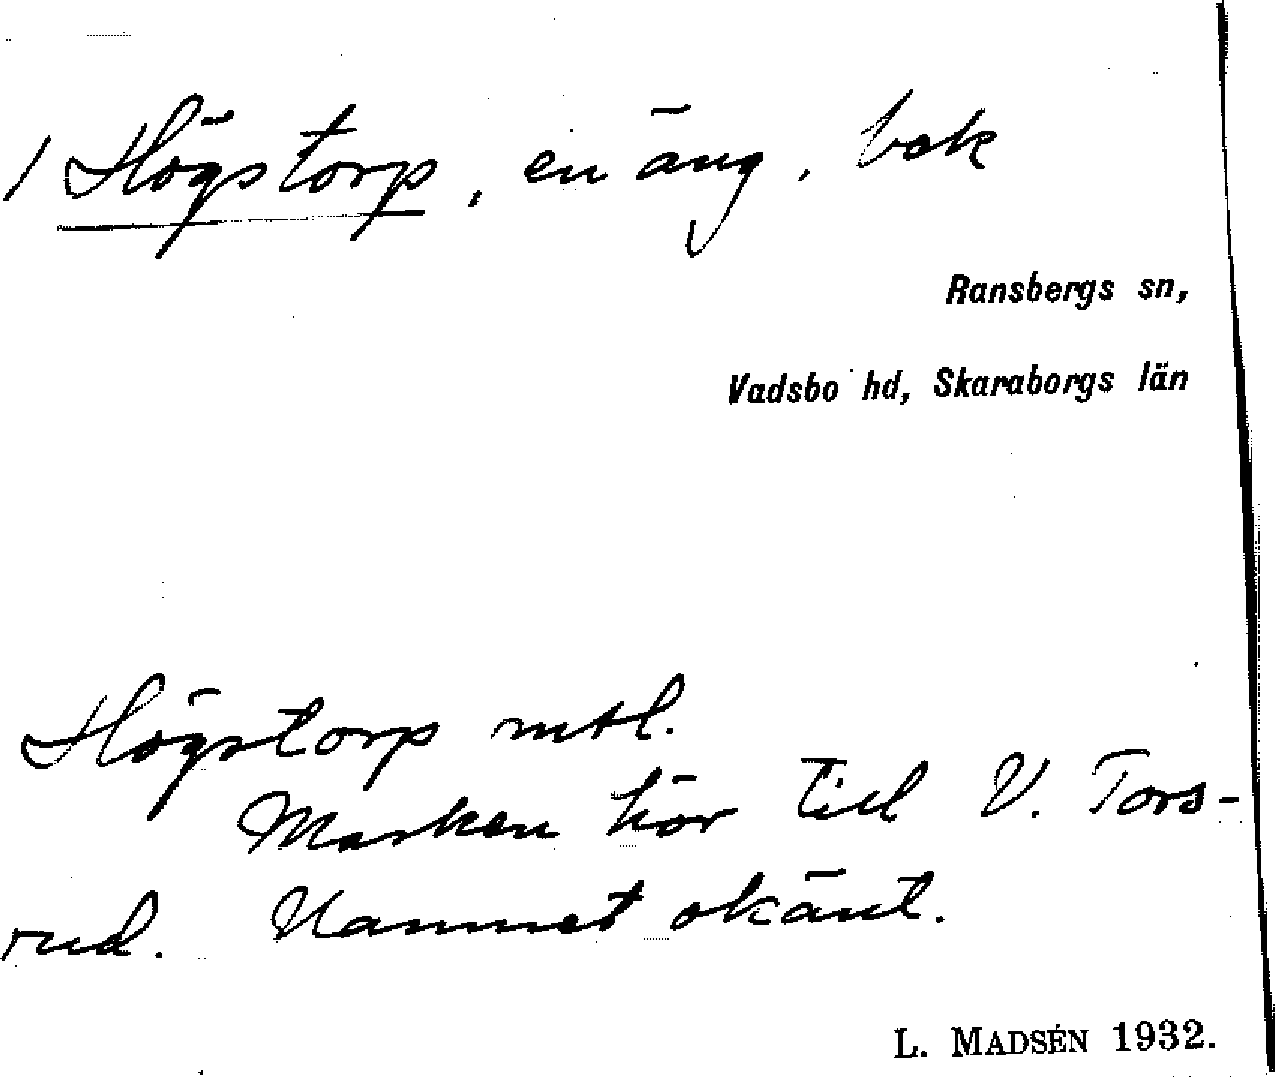 1 Högstorp, en äng, bek
Ransbergs sn,
Vadsbo hd, Skaraborgs län
Högstorp mtl.
Marken hör till V. Tors-
rud. Namnet okänt.
L. MADSÉN 1932.